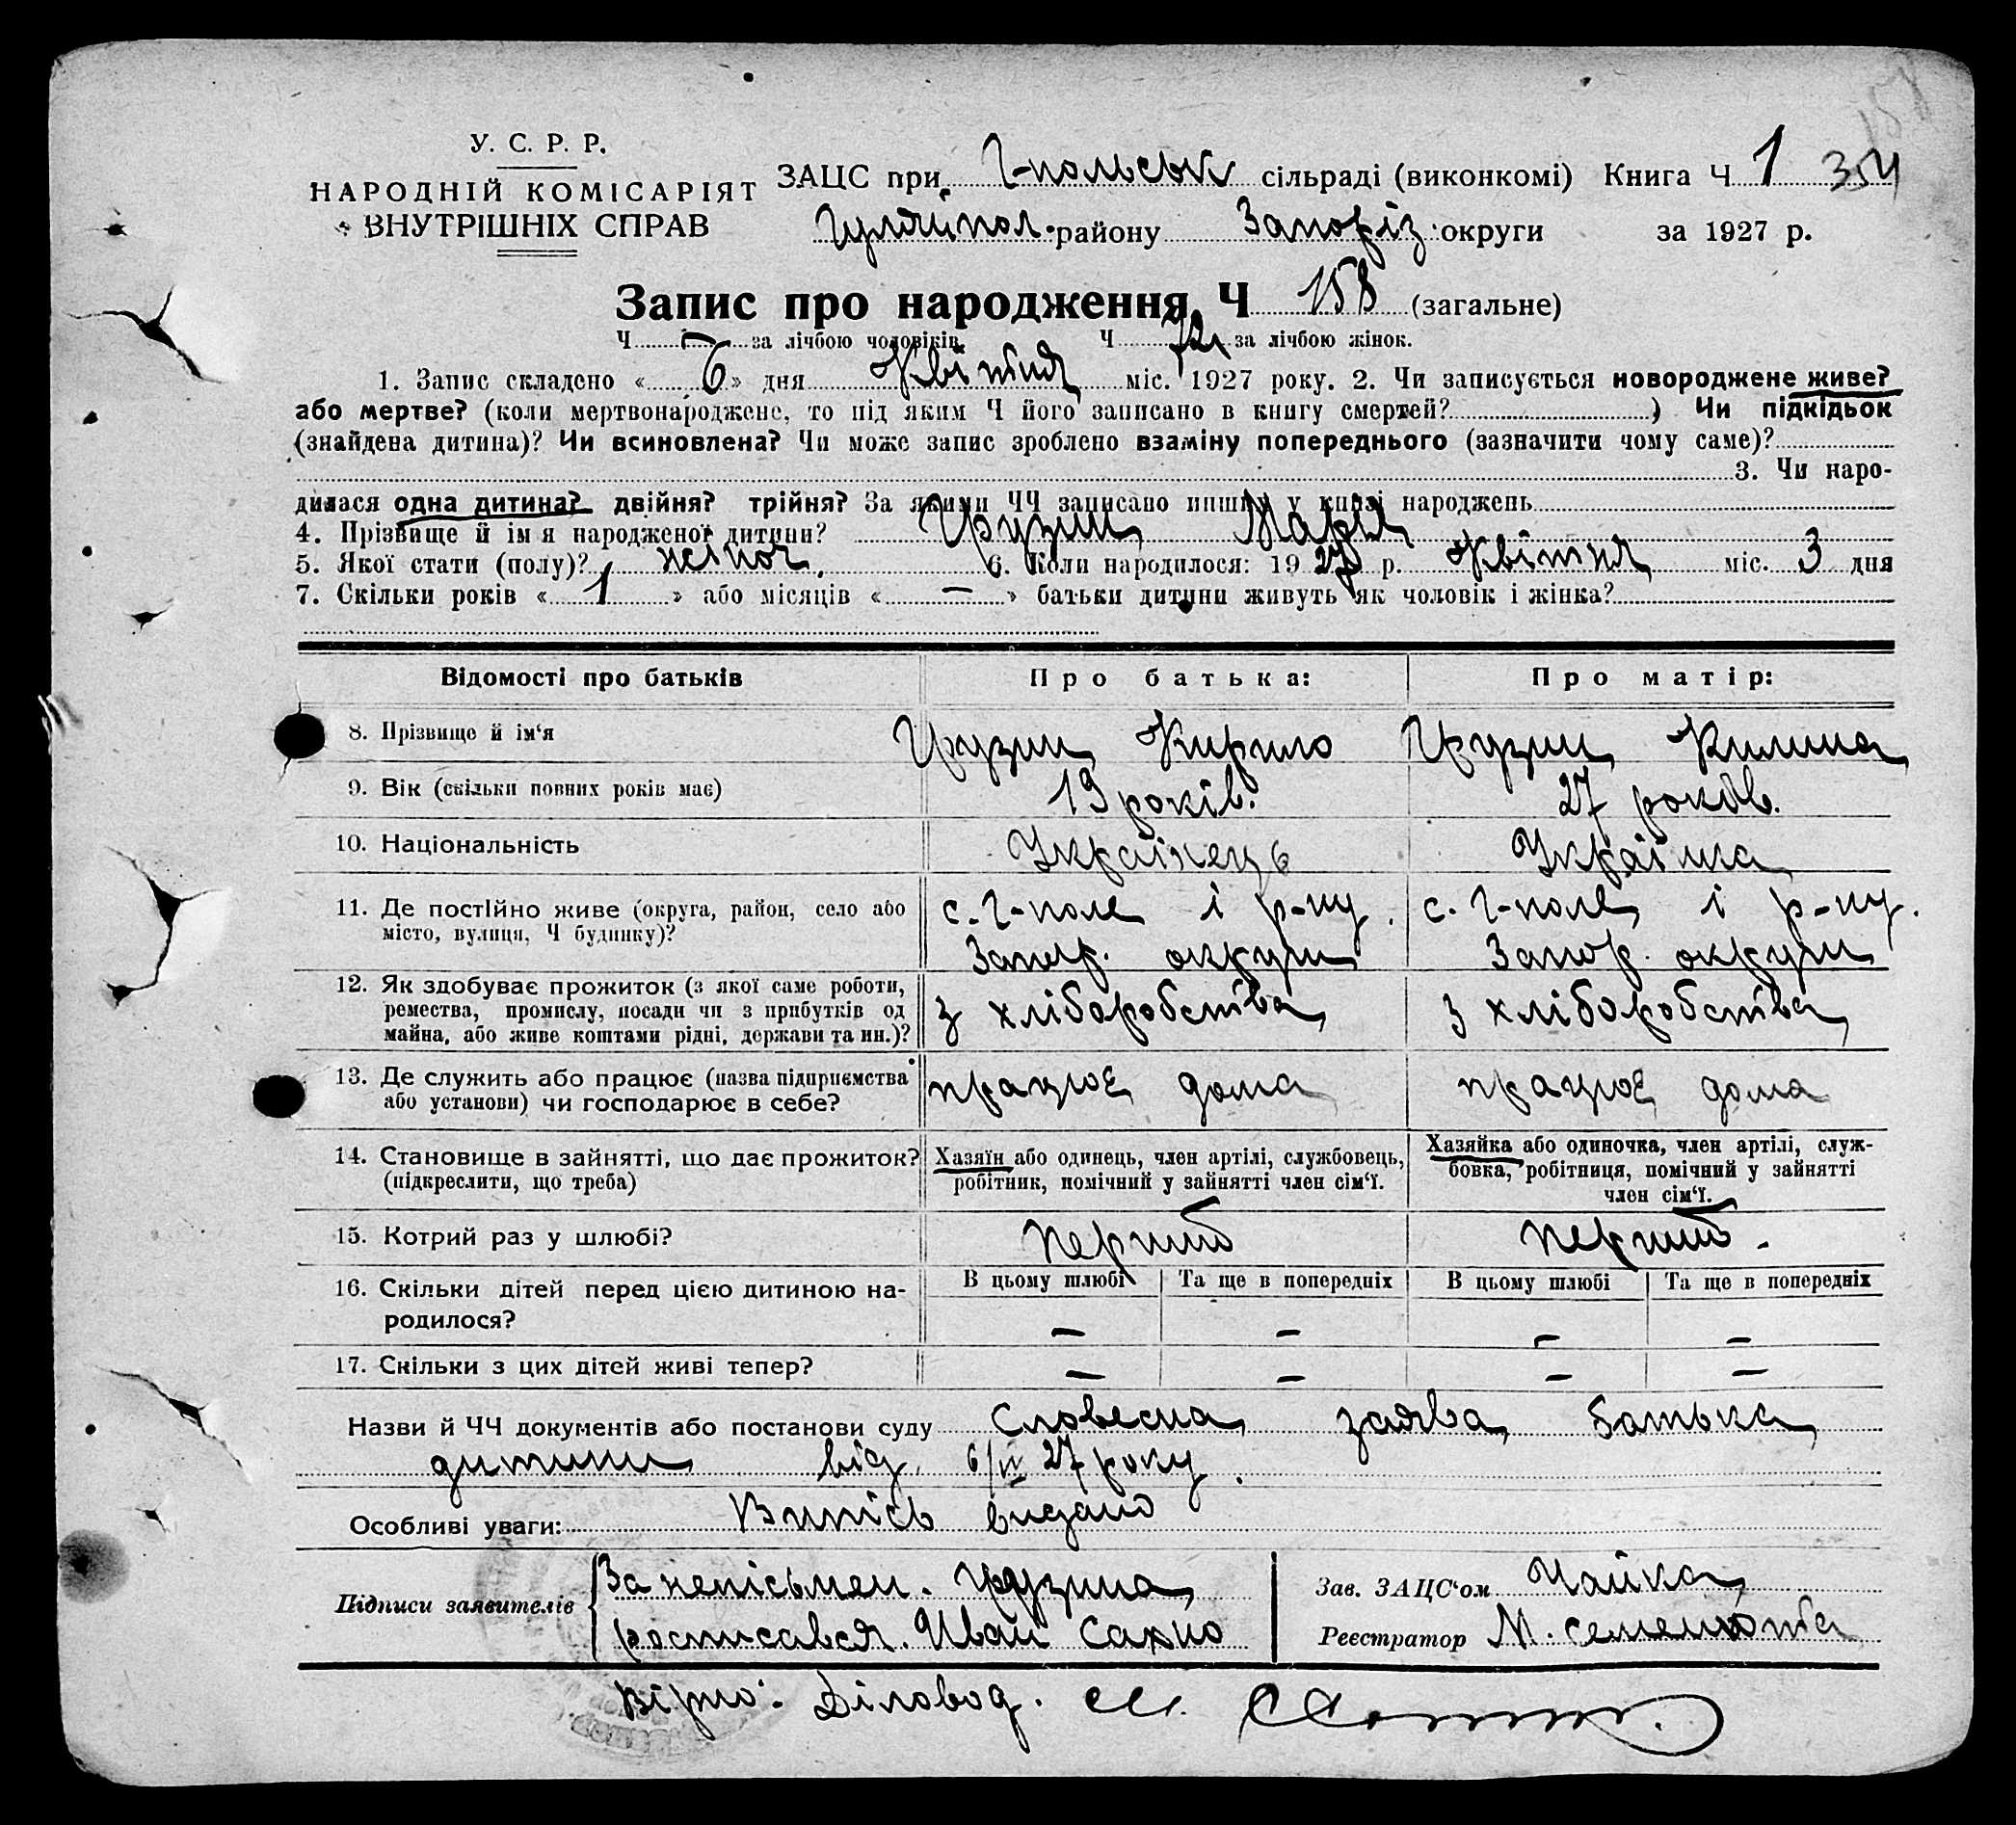 158
У. С. Р. Р.
НАРОДНІЙ КОМІСАРІЯТ
ВНУТРІШНІХ СПРАВ
ЗАЦС при Г-польськ сільраді (виконкомі) Книга Ч 1 354
Гуляйпол. району Запоріз. округи за 1927 р.
Запис про народження Ч 158 (загальне)
Ч за лічбою чоловіків. Ч 72 за лічбою жінок.
1. Запис складено « 6 » дня Квітня міс. 1927 року. 2. Чи записується новороджене живе?
або мертве? (коли мертвонароджене, то під яким Ч його записано в книгу смертей? ) Чи підкідьок
(знайдена дитина)? Чи всиновлена? Чи може запис зроблено взаміну попереднього (зазначити чому саме)?
3. Чи наро-
дилася одна дитина? двійня? трійня? За якими ЧЧ записано инших у книзі народжень
4. Прізвище й ім я народженої дитини? Грузин Марія
5. Якої стати (полу)? жіноч. 6. Коли народилося: 19 27 р. Квітня міс. 3 дня
7. Скільки років « 1 » або місяців « — » батьки дитини живуть як чоловік і жінка?
Відомості про батьків Про батька: Про матір:
8. Прізвище й ім'я Грузин Кирило Грузин Килина
9. Вік (скільки повних років має) 19 років. 27 років.
10. Національність Українець Українка
11. Де постійно живе (округа, район, село або с. Г-поле і р-ну. с. Г-поле і р-ну.
місто, вулиця, Ч будинку)? Запор. округи Запор. округи
12. Як здобуває прожиток (з якої саме роботи,
ремества, промислу, посади чи з прибутків од з хліборобства з хліборобства
майна, або живе коштами рідні, держави та ин.)?
13. Де служить або працює (назва підприємства працює дома працює дома
або установи) чи господарює в себе?
14. Становище в зайнятті, що дає прожиток? Хазяїн або одинець, член артілі, службовець, Хазяйка або одиночка, член артілі, служ-
(підкреслити, що треба) робітник, помічний у зайнятті член сім'ї. бовка, робітниця, помічний у зайнятті
член сім'ї.
15. Котрий раз у шлюбі? перший перший.
16. Скільки дітей перед цією дитиною на- В цьому шлюбі Та ще в попередніх В цьому шлюбі Та ще в попередніх
родилося? — — — —
17. Скільки з цих дітей живі тепер? — — — —
Назви й ЧЧ документів або постанови суду Словесна заява батька
дитини від 6/IV 27 року.
Особливі уваги: Випісь видано
Підписи заявителів За непісьмен. Грузина
росписався. Иван Сахно
Зав. ЗАЦС'ом Чайка
Реєстратор М. Семенюта
Вірно: Діловод.